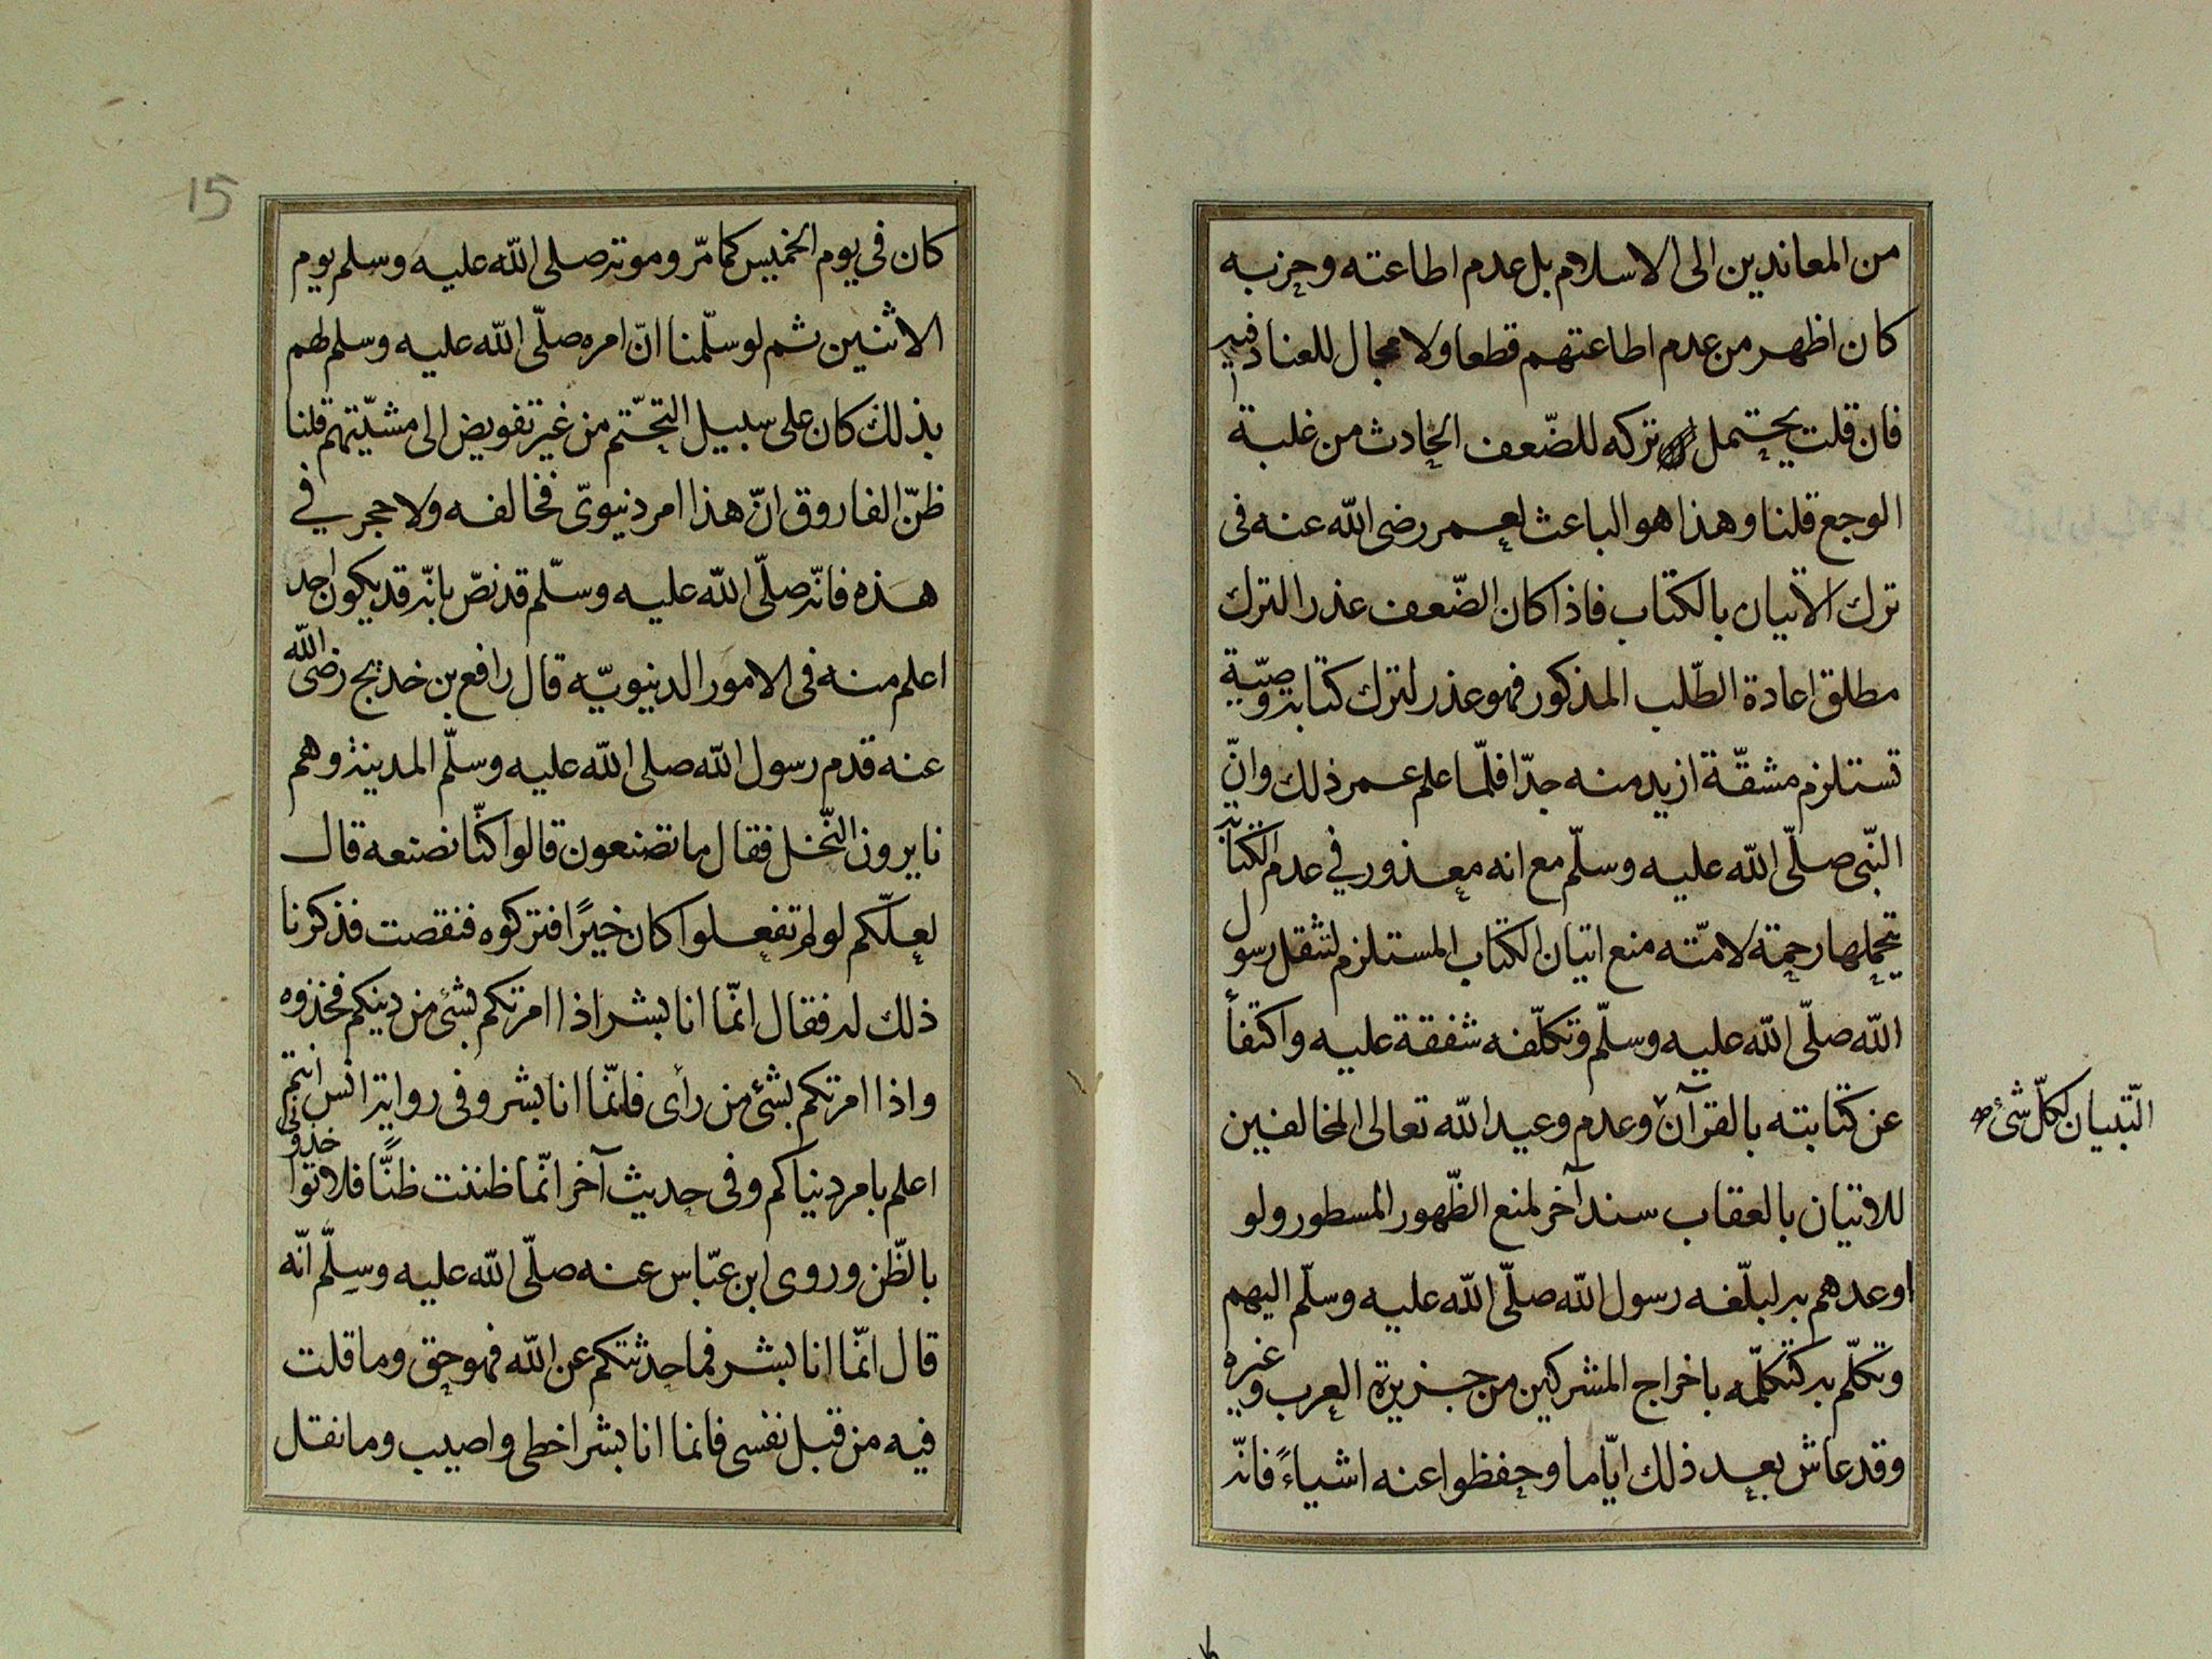 من المعاندين الى الاسلام بل عدم اطاعته وحزبه
كان اظهر من عدم اطاعتهم قطعا ولا مجال للعناد فيه
فان قلت يحتمل تركه للضّعف الحادث من غلبة
الوجع قلنا وهذا هو الباعث لعمر رضى الله عنه فى
ترك الاتيان بالكتاب فاذا كان الضّعف عذر الترك
مطلق اعادة الطّلب المذكور فهو عذر لترك كتابة وصيّة
تستلزم مشقّة ازيد منه جدّا فلمّا علم عمر ذلك وانّ
النّبى صلّى الله عليه وسلّم مع انه معذور في عدم الكتابة
يتحملها رحمة لامّته منع اتيان الكتاب المستلزم لثقل رسول
الله صلّى الله عليه وسلّم وتكلّفه شفقة عليه واكتفأ
عن كتابته بالقرآن وعدم وعيد الله تعالى المخالفين
التّبيان لكلّ شئ صح
للاتيان بالعقاب سند آخر لمنع الظّهور المسطور ولو
اوعدهم به لبلّغه رسول الله صلّى الله عليه وسلّم اليهم
وتكلّم به كتكلّمه باخراج المشركين من جزيرة العرب وغيره
وقد عاش بعد ذلك ايّاما وحفظوا عنه اشياءً فانّه
15
كان فى يوم الخميس كما مرّ وموته صلى الله عليه وسلم يوم
الاثنين ثم لو سلّمنا انّ امره صلّى الله عليه وسلم لهم
بذلك كان على سبيل التحتّم من غير تفويض الى مشيّتهم قلنا
ظنّ الفاروق انّ هذا امر دنيوىّ فخالفه ولا حجر في
هذه فانّه صلّى الله عليه وسلّم قد نصّ بانّه قد يكون احد
اعلم منه فى الامور الدنيويّه قال رافع بن خديج رضى الله
عنه قدم رسول الله صلى الله عليه وسلّم المدينة وهم
نابرون النّخل فقال ما تصنعون قالوا كنّا نصنعه قال
لعلّكم لو لم تفعلوا كان خيرًا فتركوه فنقصت فذكرنا
ذلك له فقال انّما انا بشر اذا امرتكم بشئ من دينكم فخذوه
واذا امرتكم بشئ من رأى فانّما انا بشر وفى رواية انس انتم
اعلم بامر دنياكم وفى حديث آخر انّما ظننت ظنًّا فلا تواخذونى
بالظّن وروى ابن عبّاس عنه صلّى الله عليه وسلّم انّه
قال انّما انا بشر فما حدثتكم عن الله فهو حق وما قلت
فيه من قبل نفسى فانما انا بشر اخطى واصيب وما نقل